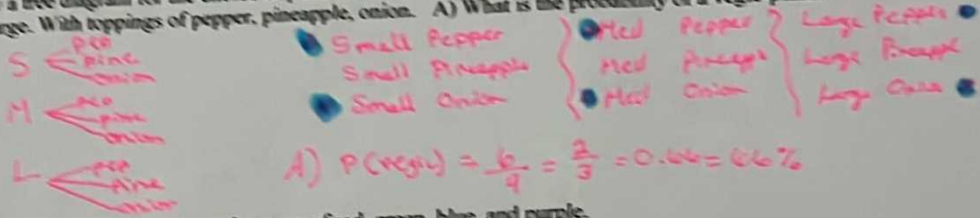 rge. With toppings of pepper, pineapple, onion. A) What is the probability of a
S pep pine onion
M pep pine onion
L pep pine onion
Small Pepper
Small Pineapple
Small Onion
Med Pepper
Med
Med Onion
Large Pepper
Large
Large
A) P(vegie) = 6/9 = 2/3 = 0.66 = 66%
blue and purple.